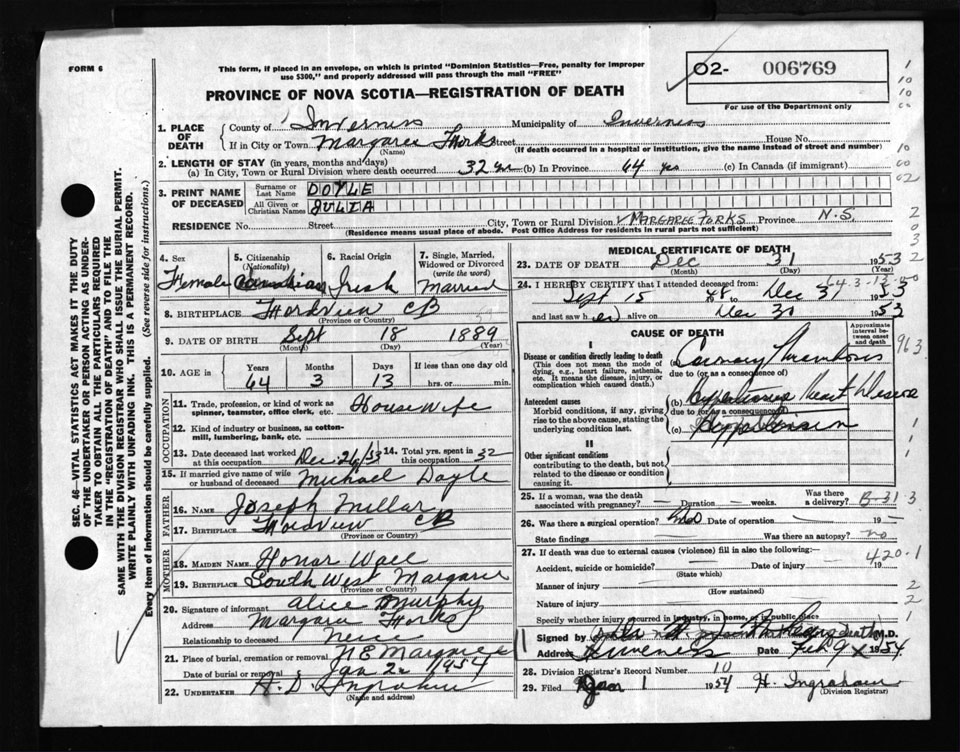 FORM 6
This form, if placed in an envelope, on which is printed "Dominion Statistics—Free, penalty for improper use $300," and properly addressed will pass through the mail "FREE"
02- 006769
For use of the Department only
PROVINCE OF NOVA SCOTIA—REGISTRATION OF DEATH
1. PLACE OF DEATH
County of Inverness Municipality of Inverness
If in City or Town Margaree Forks Street House No.
(Name) (If death occurred in a hospital or institution, give the name instead of street and number)
2. LENGTH OF STAY (in years, months and days)
(a) In City, Town or Rural Division where death occurred 32 yrs (b) In Province 64 yrs (c) In Canada (if immigrant)
3. PRINT NAME OF DECEASED
Surname or Last Name DOYLE
All Given or Christian Names JULIA
RESIDENCE No. Street City, Town or Rural Division MARGAREE FORKS Province N.S.
(Residence means usual place of abode. Post Office Address for residents in rural parts not sufficient)
4. Sex Female
5. Citizenship (Nationality) Canadian
6. Racial Origin Irish
7. Single, Married, Widowed or Divorced (write the word) Married
8. BIRTHPLACE Fordview CB
(Province or Country)
9. DATE OF BIRTH Sept 18 1889
(Month) (Day) (Year)
10. AGE in Years 64 Months 3 Days 13 If less than one day old hrs. or min.
OCCUPATION
11. Trade, profession, or kind of work as spinner, teamster, office clerk, etc. House Wife
12. Kind of industry or business, as cotton-mill, lumbering, bank, etc.
13. Date deceased last worked at this occupation Dec 26/53 14. Total yrs. spent in this occupation 32
15. If married give name of wife or husband of deceased Michael Doyle
FATHER
16. NAME Joseph Millar
17. BIRTHPLACE Fordview CB
(Province or Country)
MOTHER
18. MAIDEN NAME Honor Wall
19. BIRTHPLACE South West Margaree
(Province or Country)
20. Signature of informant Alice Murphy
Address Margaree Forks
Relationship to deceased Neice
21. Place of burial, cremation or removal N E Margaree
Date of burial or removal Jan 2 1954
22. UNDERTAKER H. D. Ingraham
(Name and address)
MEDICAL CERTIFICATE OF DEATH
23. DATE OF DEATH Dec 31 1953
(Month) (Day) (Year)
24. I HEREBY CERTIFY that I attended deceased from:
Sept 15 1948 to Dec 31 1953
and last saw her alive on Dec 30 1953
CAUSE OF DEATH
Approximate interval between onset and death
I
Disease or condition directly leading to death
(This does not mean the mode of dying, e.g., heart failure, asthenia, etc. It means the disease, injury, or complication which caused death.)
(a) Coronary Thrombosis
due to (or as a consequence of)
Antecedent causes
Morbid conditions, if any, giving rise to the above cause, stating the underlying condition last.
(b) Hypertensive Heart Disease
due to (or as a consequence of)
(c) Hypertension
II
Other significant conditions
contributing to the death, but not related to the disease or condition causing it.
25. If a woman, was the death associated with pregnancy? Duration weeks. Was there a delivery?
B-31
26. Was there a surgical operation? No Date of operation 19
State findings Was there an autopsy? no
27. If death was due to external causes (violence) fill in also the following:—
420.1
Accident, suicide or homicide? Date of injury 19
(State which)
Manner of injury
(How sustained)
Nature of injury
Specify whether injury occurred in industry, in home, or in public place
Signed by M.D.
Address Inverness Date Feb 9 1954
28. Division Registrar's Record Number 10
29. Filed Jan 1 1954 H. Ingraham
(Division Registrar)
SEC. 46—VITAL STATISTICS ACT MAKES IT THE DUTY OF THE UNDERTAKER OR PERSON ACTING AS UNDERTAKER TO OBTAIN ALL THE PARTICULARS REQUIRED IN THE "REGISTRATION OF DEATH" AND TO FILE THE SAME WITH THE DIVISION REGISTRAR WHO SHALL ISSUE THE BURIAL PERMIT.
WRITE PLAINLY WITH UNFADING INK. THIS IS A PERMANENT RECORD.
Every item of information should be carefully supplied. (See reverse side for instructions.)